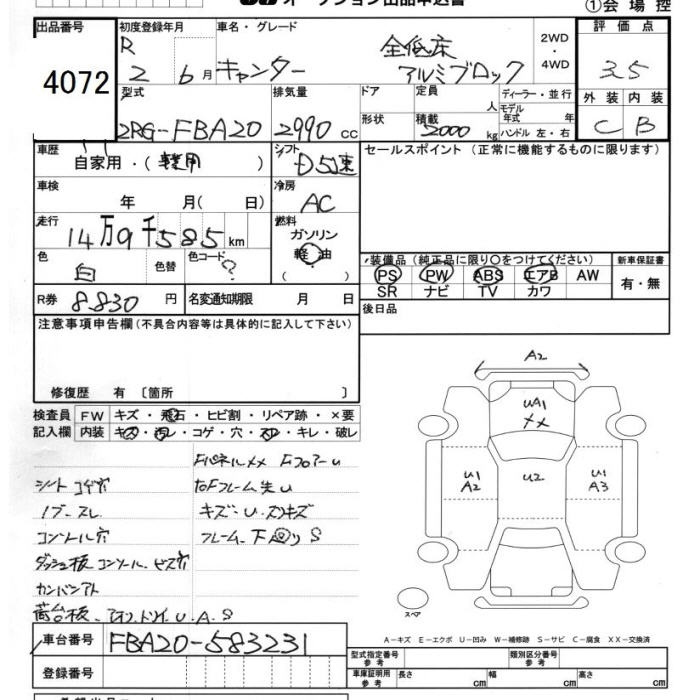 オークション出品申込書
①会場控
出品番号
4072
初度登録年月
R 2 6月
車名・グレード
キャンター 全低床
アルミブロック
2WD
・
4WD
評価点
3.5
外装 内装
C B
型式
2RG-FBA20
排気量
2990 cc
ドア
形状
定員 人
積載 2000 kg
ディーラー・並行
モデル
年式 年
ハンドル 左・右
車歴
自家用・( )
シフト
D5速
セールスポイント(正常に機能するものに限ります)
車検
年 月( 日)
冷房
AC
走行
14万9千585km
燃料
ガソリン
軽油
( )
色
白
色替
色コード
?
装備品(純正品に限り○をつけてください)
PS PW ABS エアB AW
SR ナビ TV カワ
新車保証書
有・無
R券 8,830 円
名変通知期限 月 日
後日品
注意事項申告欄(不具合内容等は具体的に記入して下さい)
修復歴 有 〔箇所 〕
検査員
記入欄
FW キズ・飛石・ヒビ割・リペア跡・×要
内装 キズ・汚レ・コゲ・穴・スレ・キレ・破レ
Fパネル×× FフロアーU
シートコゲ穴
ノブ スレ
キズ・U・スリキズ
コンソール穴
フレーム、下回りS
ダッシュ板 コンソール、ビス穴
カンバンアト
荷台板、アオリ、トリイ、U、A、S
A2
UA1
××
U1
A2
U2
U1
A3
スペア
A-キズ E-エクボ U-凹み W-補修跡 S-サビ C-腐食 XX-交換済
車台番号 FBA20-583231
登録番号
型式指定番号
参考
類別区分番号
参考
車庫証明用
参考
長さ cm 幅 cm 高さ cm